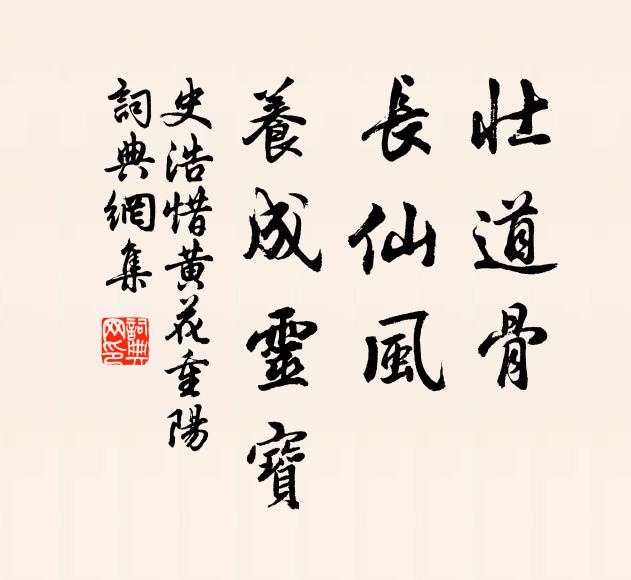 壯道骨
長仙風
養成靈寶
史浩惜黄花重陽
詞典網集
詞典网印